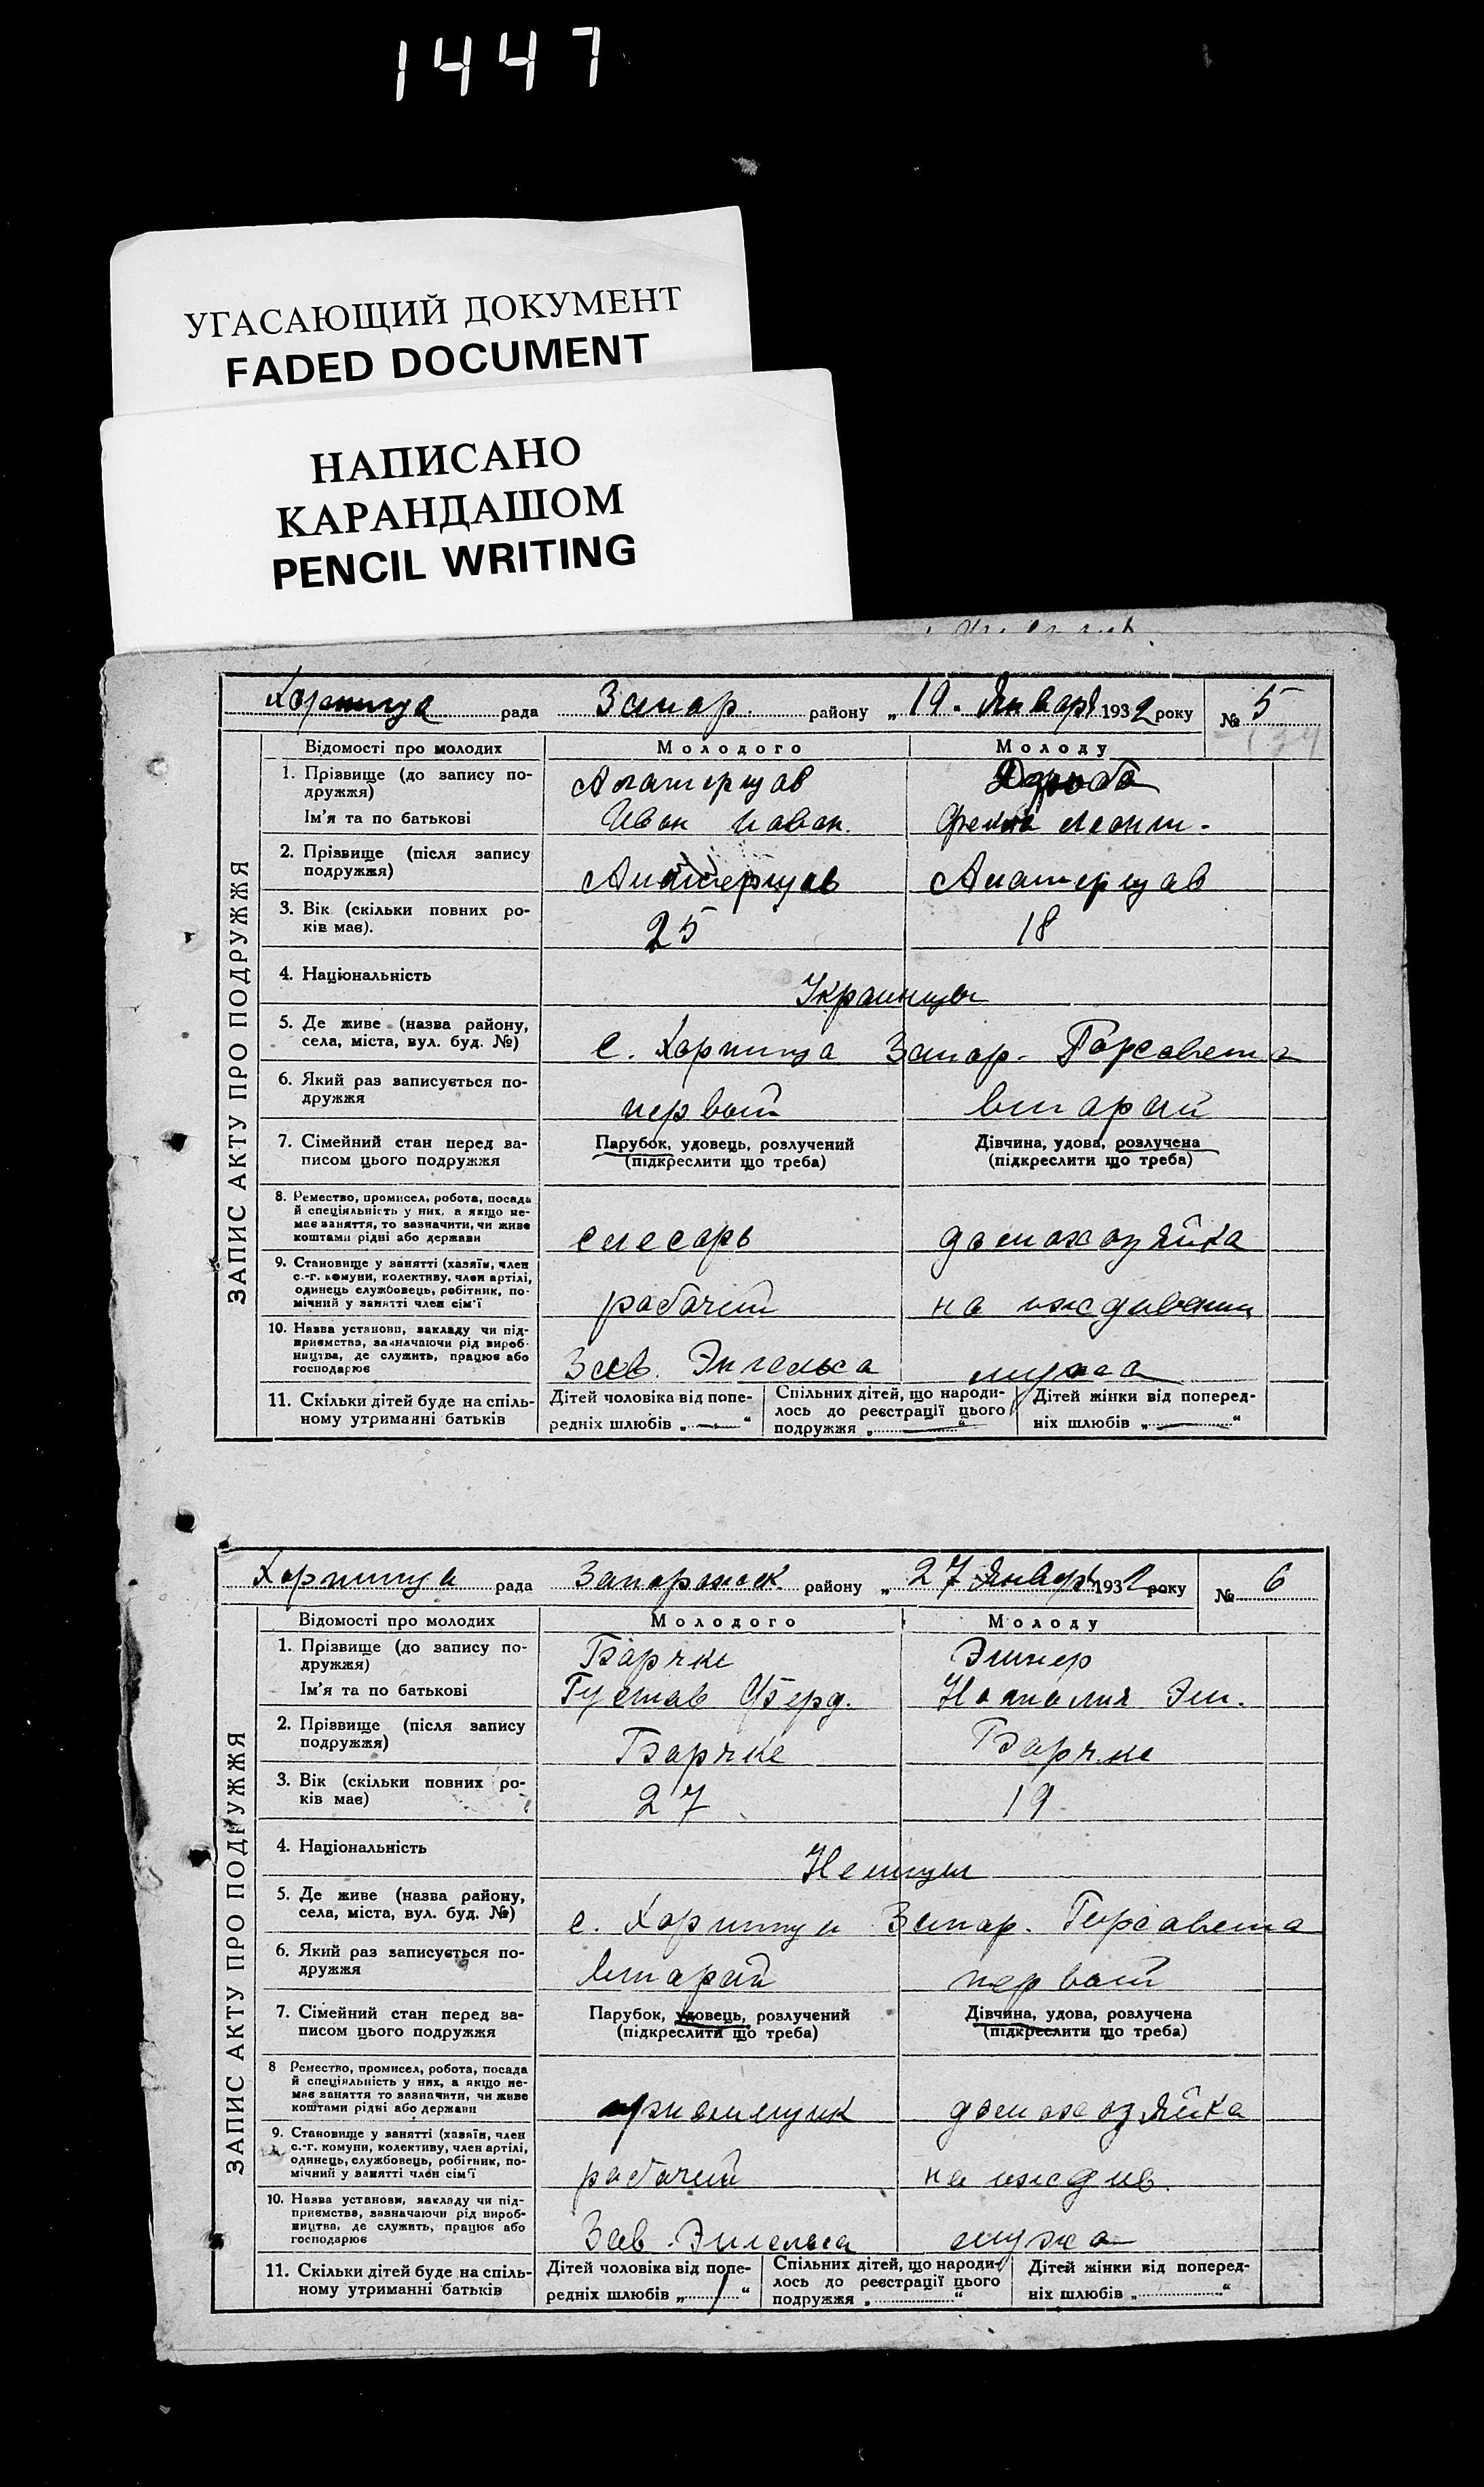 1447
УГАСАЮЩИЙ ДОКУМЕНТ
FADED DOCUMENT
НАПИСАНО
КАРАНДАШОМ
PENCIL WRITING
Хортица рада Запор. району „ 19. Января 1932 року № 5
ЗАПИС АКТУ ПРО ПОДРУЖЖЯ
Відомості про молодих Молодого Молоду
1. Прізвище (до запису по-
дружжя)
Ім'я та по батькові Иван Иован. Леонт.
2. Прізвище (після запису
подружжя)
3. Вік (скільки повних ро-
ків має). 25 18
4. Національність Украинцы
5. Де живе (назва району,
села, міста, вул. буд. №) с. Хортица Запор. Горсовета
6. Який раз записується по-
дружжя первый вторый
7. Сімейний стан перед за-
писом цього подружжя
Парубок, удовець, розлучений
(підкреслити що треба)
Дівчина, удова, розлучена
(підкреслити що треба)
8. Ремество, промисел, робота, посада
й спеціяльність у них, а якщо не-
має заняття, то зазначити, чи живе
коштами рідні або держави слесарь домохозяйка
9. Становище у занятті (хазяїн, член
с.-г. комуни, колективу, член артілі,
одинець службовець, робітник, по-
мічний у занятті член сім'ї рабочий на иждивении
10. Назва установи, закладу чи під-
приємства, зазначаючи рід вироб-
ництва, де служить, працює або
господарює Зав. Энгельса мужа
11. Скільки дітей буде на спіль-
ному утриманні батьків
Дітей чоловіка від попе-
редніх шлюбів „ — “
Спільних дітей, що народи-
лось до реєстрації цього
подружжя „ — “
Дітей жінки від поперед-
ніх шлюбів „ — “
Хортица рада Запорожск району „ 27 Января 1932 року № 6
ЗАПИС АКТУ ПРО ПОДРУЖЖЯ
Відомості про молодих Молодого Молоду
1. Прізвище (до запису по-
дружжя) Барчке
Ім'я та по батькові Густав Ферд. Наталия Эм.
2. Прізвище (після запису
подружжя) Барчке Барчке
3. Вік (скільки повних ро-
ків має) 27 19
4. Національність Немцы
5. Де живе (назва району,
села, міста, вул. буд. №) с. Хортица Запор. Горсовета
6. Який раз записується по-
дружжя вторый первый
7. Сімейний стан перед за-
писом цього подружжя
Парубок, удовець, розлучений
(підкреслити що треба)
Дівчина, удова, розлучена
(підкреслити що треба)
8 Ремество, промисел, робота, посада
й спеціяльність у них, а якщо не-
має заняття то зазначити, чи живе
коштами рідні або держави домохозяйка
9. Становище у занятті (хазяїн, член
с.-г. комуни, колективу, член артілі,
одинець, службовець, робітник, по-
мічний у занятті член сім'ї рабочий на иждив.
10. Назва установи, закладу чи під-
приємства, зазначаючи рід вироб-
ництва, де служить, працює або
господарює Зав. Энгельса мужа
11. Скільки дітей буде на спіль-
ному утриманні батьків
Дітей чоловіка від попе-
редніх шлюбів „ 1 “
Спільних дітей, що народи-
лось до реєстрації цього
подружжя „ “
Дітей жінки від поперед-
ніх шлюбів „ “